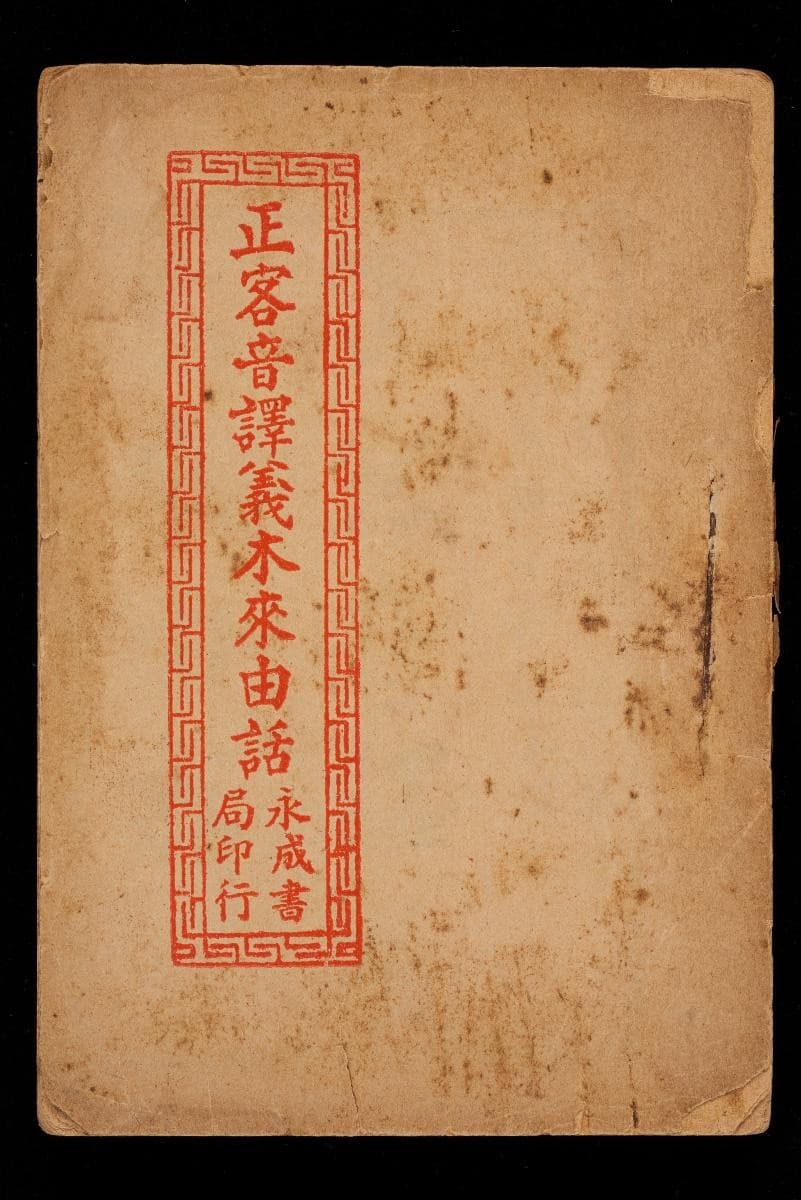 正客音譯義木來由話
永成書
局印行